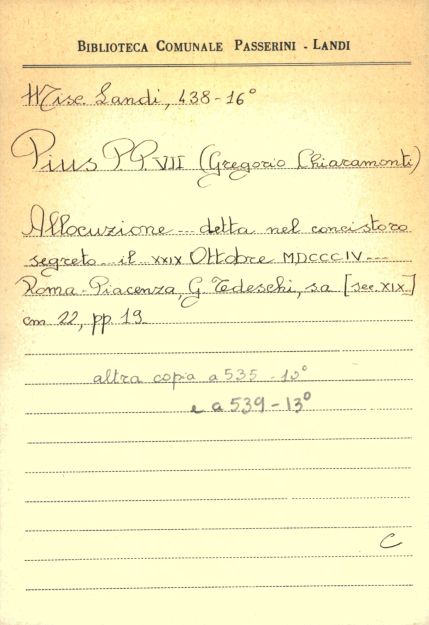 BIBLIOTECA COMUNALE PASSERINI - LANDI
Misc. Landi, 438-16°
Pius PP. VII (Gregorio Chiaramonti)
Allocuzione... detta nel concistoro
segreto... il XXIX Ottobre MDCCCIV...
Roma-Piacenza, G. Tedeschi, s.a. [sec. XIX]
cm 22, pp. 19.
altra copia a 535 - 10°
e a 539 - 13°
C